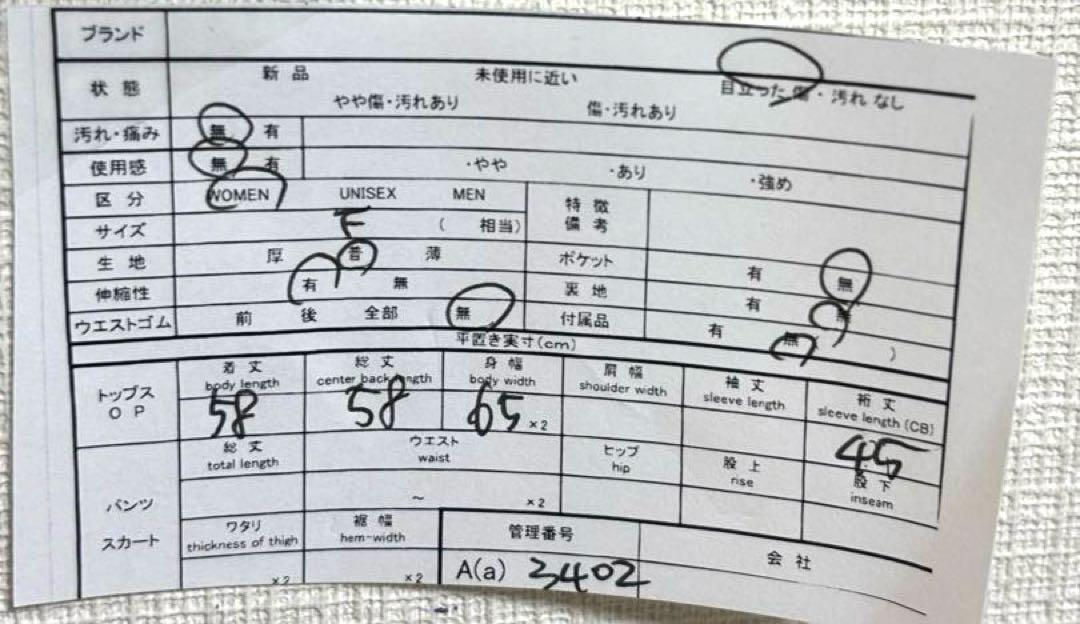 ブランド
状態 新品 未使用に近い 目立った傷・汚れなし
やや傷・汚れあり 傷・汚れあり
汚れ・痛み 無 有
使用感 無 有 ・やや ・あり ・強め
区分 WOMEN UNISEX MEN 特徴
備考
サイズ F ( 相当)
生地 厚 普 薄 ポケット 有 無
伸縮性 有 無 裏地 有 無
ウエストゴム 前 後 全部 無 付属品 有 無 ( )
平置き実寸(cm)
トップス
OP
着丈 総丈 身幅 肩幅 袖丈 裄丈
body length center back length body width shoulder width sleeve length sleeve length (CB)
58 58 65 ×2 45
パンツ
スカート
総丈 ウエスト ヒップ 股上 股下
total length waist hip rise inseam
~ ×2
ワタリ 裾幅 管理番号 会社
thickness of thigh hem-width
×2 ×2 A(a) 3402